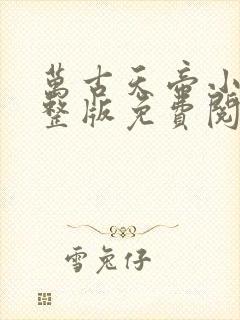 萬古天帝小
整版免費閱
雪兔仔